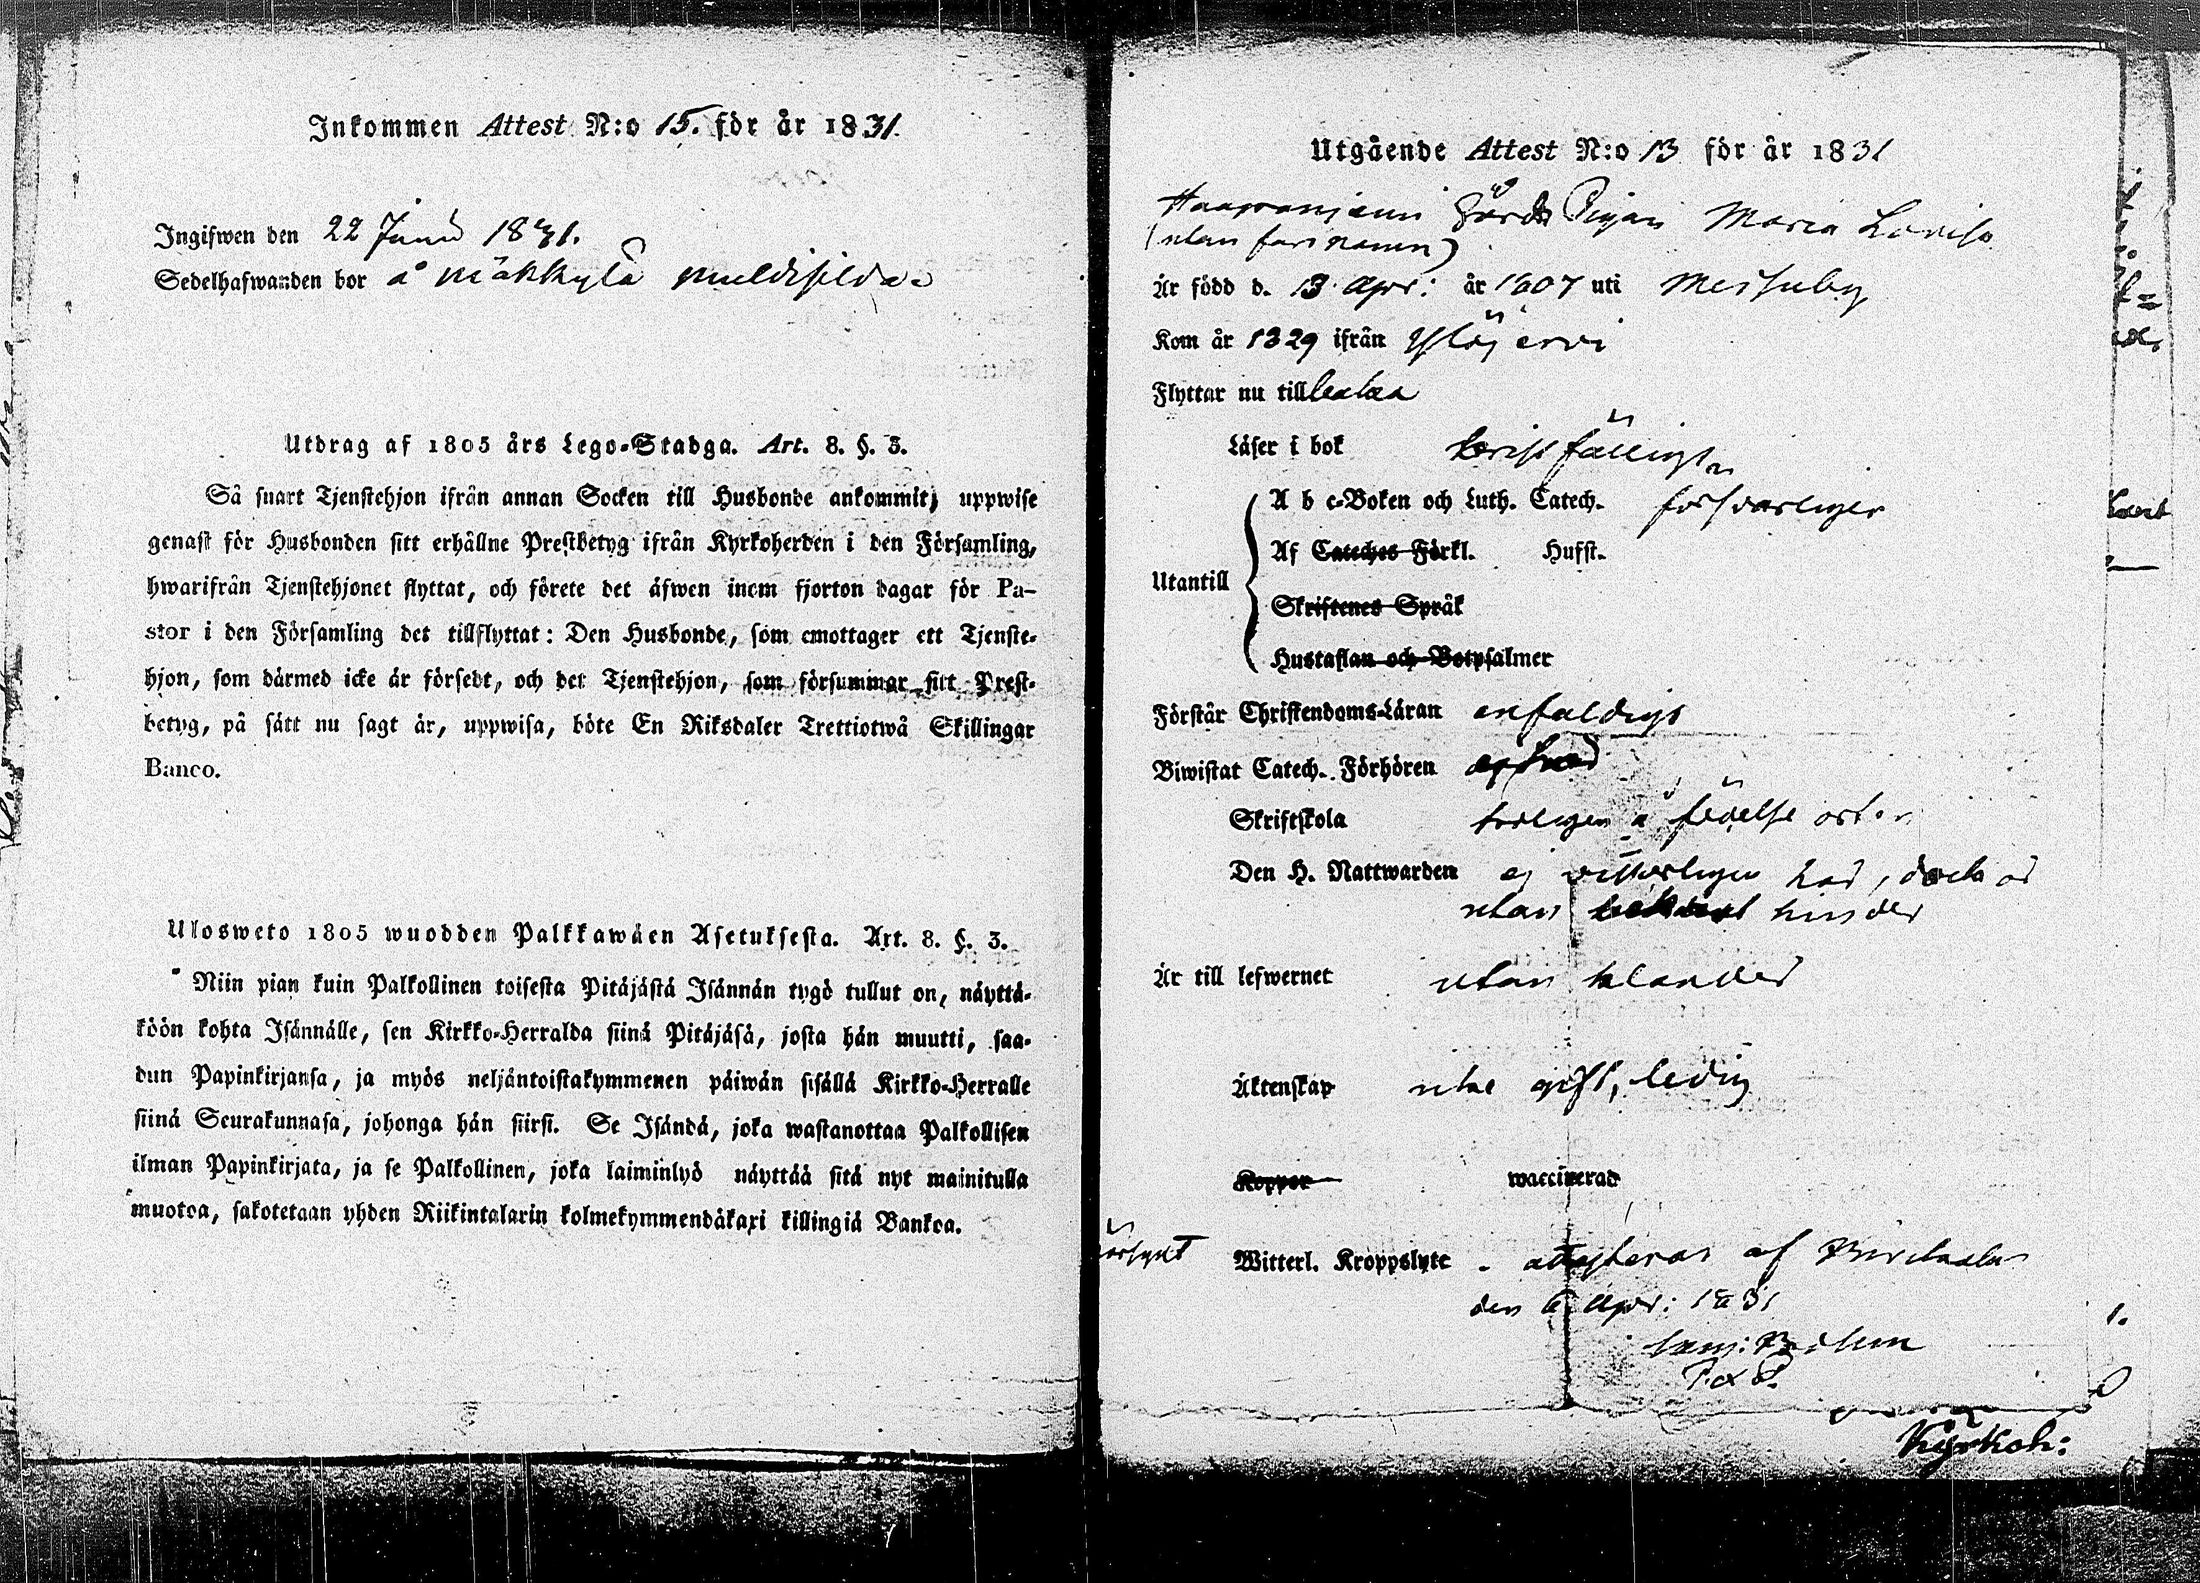 Inkommen Attest N:o 15. för år 1831.
Ingifwen den 22 Junii 1831.
Sedelhafwanden bor å Mäkkylä
Utdrag af 1805 års Lego-Stadga. Art. 8. §. 3.
Så snart Tjenstehjon ifrån annan Socken till Husbonde ankommit, uppwise
genast för Husbonden sitt erhållne Prestbetyg ifrån Kyrkoherden i den Församling,
hwarifrån Tjenstehjonet flyttat, och förete det äfwen inom fjorton dagar för Pa-
stor i den Församling det tillflyttat: Den Husbonde, som emottager ett Tjenste-
hjon, som därmed icke är försedt, och det Tjenstehjon, som försummar sitt Prest-
betyg, på sätt nu sagt är, uppwisa, böte En Riksdaler Trettiotwå Skillingar
Banco.
Ulosweto 1805 wuodden Palkkawäen Asetuksesta. Art. 8. §. 3.
Niin pian kuin Palkollinen toisesta Pitäjästä Isännän tygö tullut on, näyttä-
köön kohta Isännälle, sen Kirkko-Herralda siinä Pitäjäsä, josta hän muutti, saa-
dun Papinkirjansa, ja myös neljäntoistakymmenen päiwän sisällä Kirkko-Herralle
siinä Seurakunnasa, johonga hän siirsi. Se Isändä, joka wastanottaa Palkollisen
ilman Papinkirjata, ja se Palkollinen, joka laiminlyö näyttää sitä nyt mainitulla
muotoa, sakotetaan yhden Riikintalarin kolmekymmendäkaxi killingiä Bankoa.
Utgående Attest N:o 13 för år 1831
Haapaniemi Gårds Pigan Maria Lovisa
(utan farsnamn)
Är född d. 13 Apr: år 1807 uti Messuby
Kom år 1829 ifrån Ylöjervi
Flyttar nu till
Läser i bok
A b c-Boken och Luth. Catech. försvarligen
Af Cateches Förkl. Hufst.
Utantill
Skriftenes Språk
Hustaflan och Botpsalmer
Förstår Christendoms-Läran enfaldigt
Biwistat Catech. Förhören
Skriftskola å födelse orten
Den H. Nattwarden ej här, dock
utan hinder
Är till lefwernet utan klander
Äktenskap icke gift, ledig
Koppor waccinerad
Witterl. Kroppslyte - attesteras af Birckala
den 6 Apr: 1831
P. & P.
Kyrkoh: